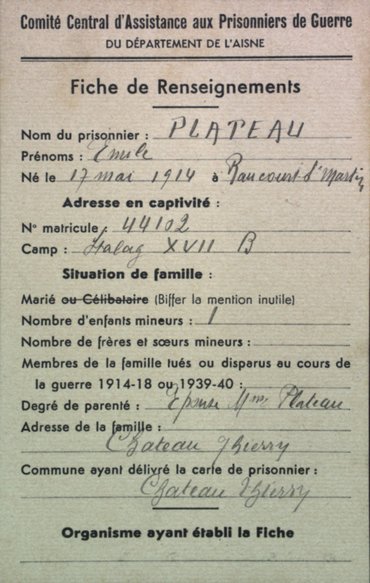 Comité Central d'Assistance aux Prisonniers de Guerre
DU DÉPARTEMENT DE L'AISNE
Fiche de Renseignements
Nom du prisonnier : PLATEAU
Prénoms : Emile
Né le 17 mai 1914 à Rancourt d'
Adresse en captivité :
N° matricule : 44102
Camp : Stalag XVII B
Situation de famille :
Marié ou Célibataire (Biffer la mention inutile)
Nombre d'enfants mineurs : 1
Nombre de frères et sœurs mineurs :
Membres de la famille tués ou disparus au cours de
la guerre 1914-18 ou 1939-40 :
Degré de parenté : Epouse Mme Plateau
Adresse de la famille :
Chateau Thierry
Commune ayant délivré la carte de prisonnier :
Chateau Thierry
Organisme ayant établi la Fiche